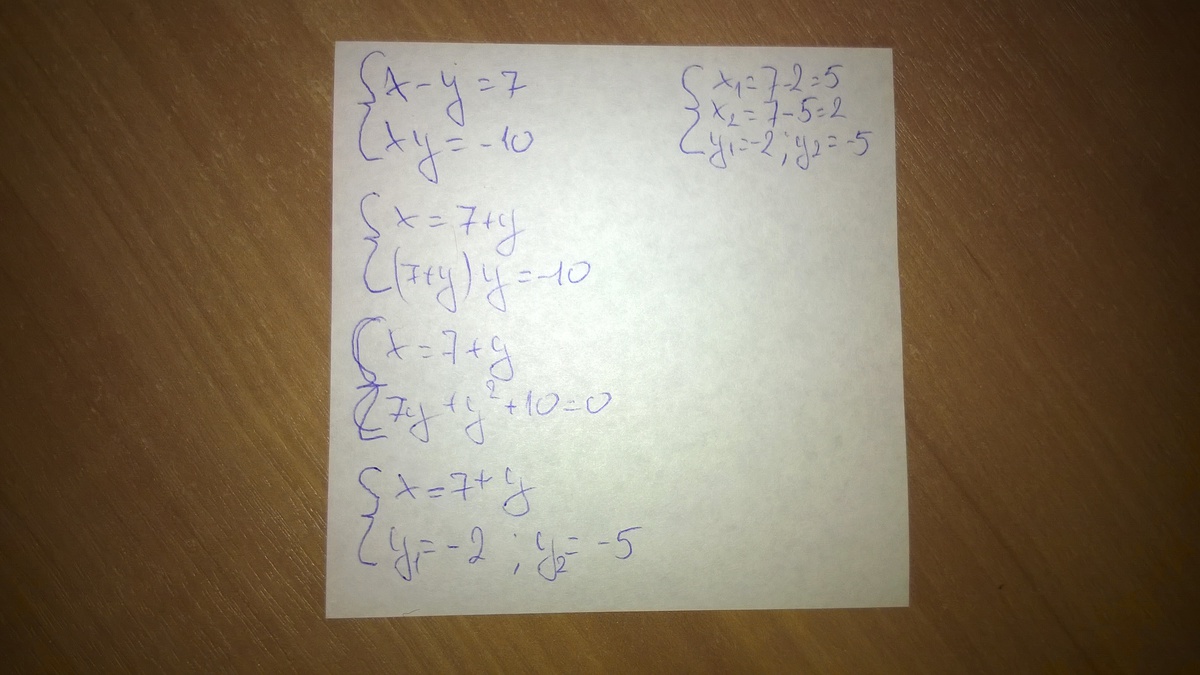 x-y=7
xy=-10
x=7+y
(7+y)y=-10
x=7+y
7y+y²+10=0
x=7+y
y₁=-2; y₂=-5
x₁=7-2=5
x₂=7-5=2
y₁=-2; y₂=-5